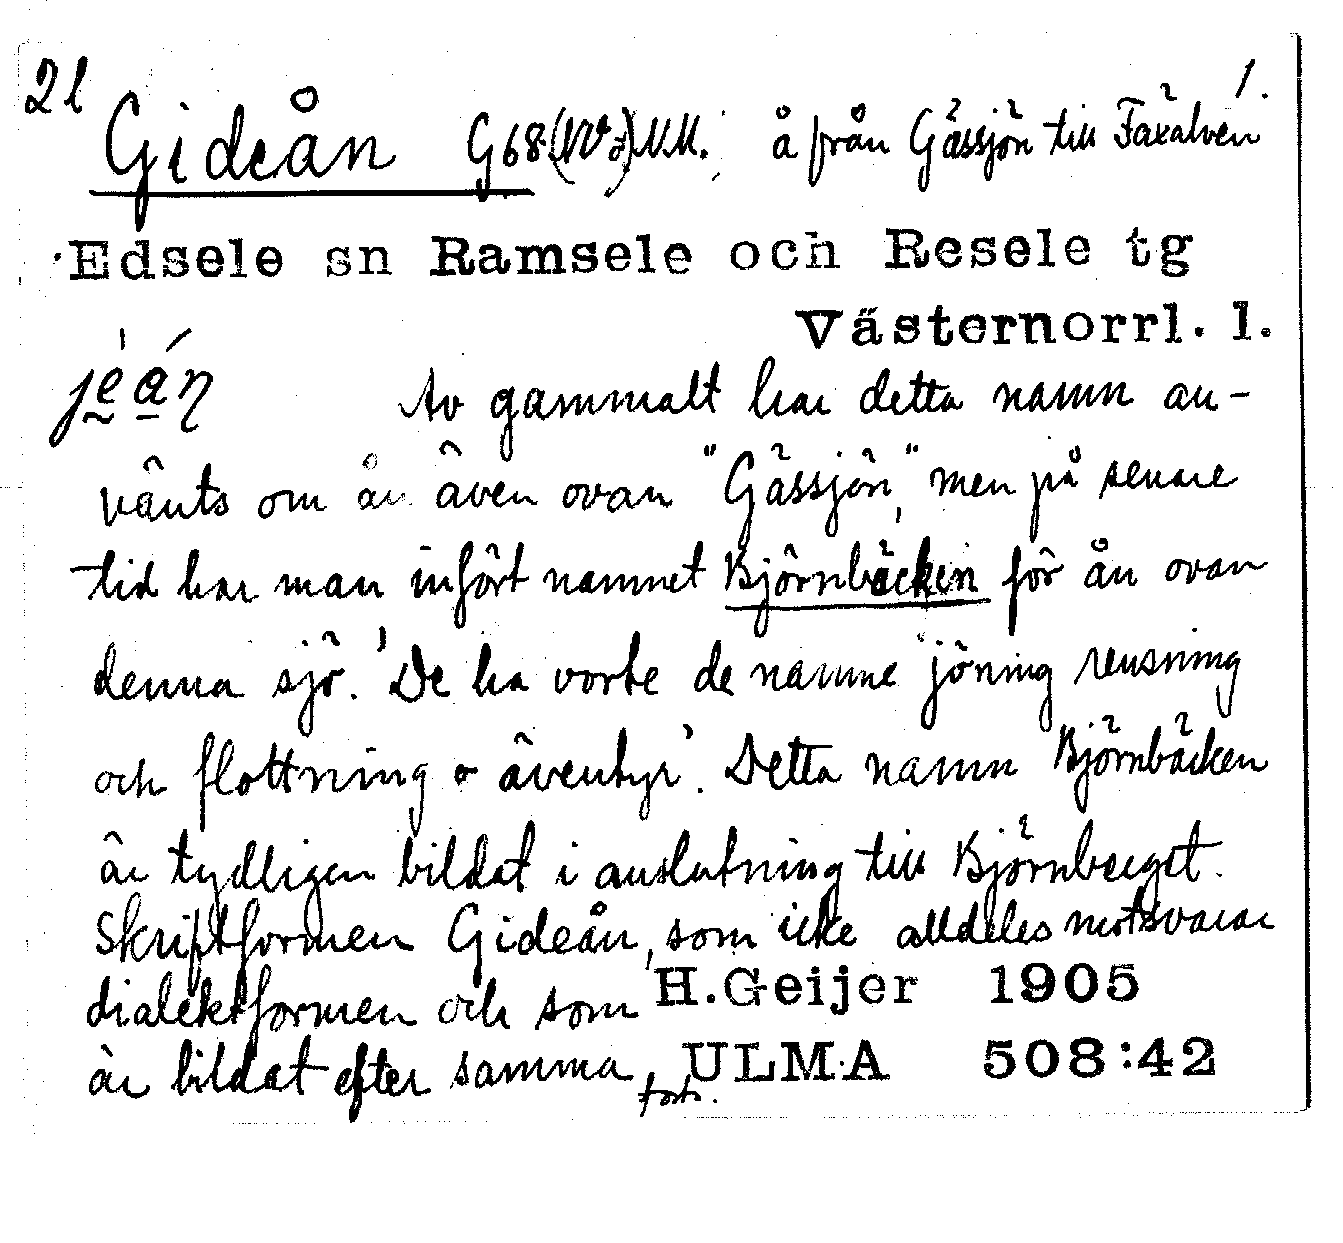 2l 1.
Gideån G68(NV) N.M. å från Gässjön till Faxälven
Edsele sn Ramsele och Resele tg
Västernorrl. l.
Av gammalt har detta namn an-
vänts om ån även ovan "Gässjön", men på senare
tid har man infört namnet Björnbäcken för ån ovan
denna sjö. 'De ha vorte de namne jöning rensning
och flottning o äventyr'. Detta namn Björnbäcken
är tydligen bildat i anslutning till Björnberget.
Skriftformen Gideån, som icke alldeles motsvarar
dialektformen och som H.Geijer 1905
är bildat efter samma ULMA 508:42
forts.